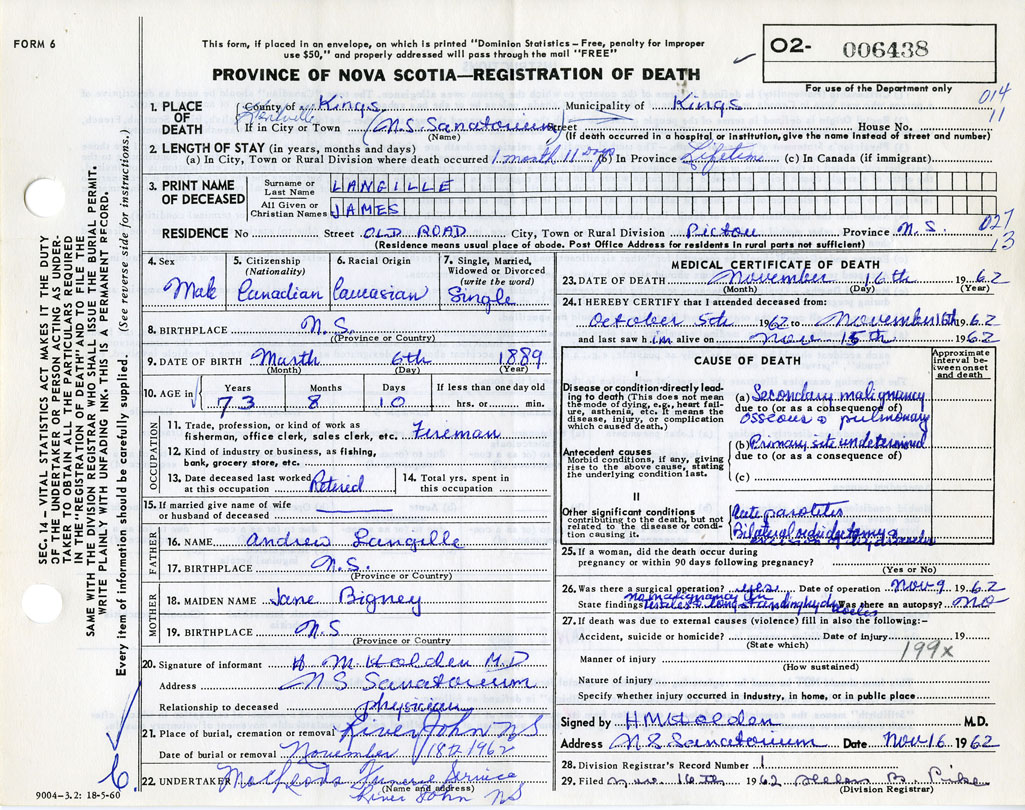 FORM 6
This form, if placed in an envelope, on which is printed "Dominion Statistics – Free, penalty for improper
use $50," and properly addressed will pass through the mail "FREE"
O2- 006438
PROVINCE OF NOVA SCOTIA—REGISTRATION OF DEATH
For use of the Department only
014
11
1. PLACE OF DEATH
County of Kings Municipality of Kings
Kentville
If in City or Town N.S. Sanatorium Street House No.
(Name) (If death occurred in a hospital or institution, give the name instead of street and number)
2. LENGTH OF STAY (in years, months and days)
(a) In City, Town or Rural Division where death occurred 1 month 11 days (b) In Province Lifetime (c) In Canada (if immigrant)
3. PRINT NAME OF DECEASED
Surname or Last Name LANGILLE
All Given or Christian Names JAMES
RESIDENCE No Street OLD ROAD City, Town or Rural Division Pictou Province N.S.
027
13
(Residence means usual place of abode. Post Office Address for residents in rural parts not sufficient)
4. Sex Male
5. Citizenship (Nationality) Canadian
6. Racial Origin Caucasian
7. Single, Married, Widowed or Divorced (write the word) Single
8. BIRTHPLACE N.S.
(Province or Country)
9. DATE OF BIRTH March 6th 1889
(Month) (Day) (Year)
10. AGE in Years 73 Months 8 Days 10 If less than one day old hrs. or min.
OCCUPATION
11. Trade, profession, or kind of work as
fisherman, office clerk, sales clerk, etc. Fireman
12. Kind of industry or business, as fishing,
bank, grocery store, etc.
13. Date deceased last worked at this occupation Retired
14. Total yrs. spent in this occupation
15. If married give name of wife
or husband of deceased
FATHER
16. NAME Andrew Langille
17. BIRTHPLACE N.S.
(Province or Country)
MOTHER
18. MAIDEN NAME Jane Bigney
19. BIRTHPLACE N.S
(Province or Country)
20. Signature of informant H M Holden M.D
Address N S Sanatorium
Relationship to deceased physician
21. Place of burial, cremation or removal River John N S
Date of burial or removal November 18th 1962
22. UNDERTAKER Funeral Service
(Name and address)
River John NS
MEDICAL CERTIFICATE OF DEATH
23. DATE OF DEATH November 16th 1962
(Month) (Day) (Year)
24. I HEREBY CERTIFY that I attended deceased from:
October 5th 1962 to November 16th 1962
and last saw him alive on Nov 15th 1962
CAUSE OF DEATH
Approximate interval between onset and death
I
Disease or condition directly leading to death (This does not mean the mode of dying, e.g., heart failure, asthenia, etc. It means the disease, injury, or complication which caused death.)
(a) Secondary malignancy
due to (or as a consequence of)
osseous & pulmonary
Antecedent causes
Morbid conditions, if any, giving rise to the above cause, stating the underlying condition last.
(b) Primary site undetermined
due to (or as a consequence of)
(c)
II
Other significant conditions
contributing to the death, but not related to the disease or condition causing it.
Acute parotitis
Bilateral
25. If a woman, did the death occur during
pregnancy or within 90 days following pregnancy?
(Yes or No)
26. Was there a surgical operation? yes Date of operation Nov 9 1962
no malignancy in
State findings testicles & long standing hydroceles Was there an autopsy? no
27. If death was due to external causes (violence) fill in also the following:-
Accident, suicide or homicide? Date of injury 19
(State which)
199x
Manner of injury
(How sustained)
Nature of injury
Specify whether injury occurred in industry, in home, or in public place
Signed by H M Holden M.D.
Address N.S. Sanatorium Date Nov 16 1962
28. Division Registrar's Record Number 1
29. Filed Nov. 16th 1962
(Division Registrar)
SEC. 14 – VITAL STATISTICS ACT MAKES IT THE DUTY
OF THE UNDERTAKER OR PERSON ACTING AS UNDER-
TAKER TO OBTAIN ALL THE PARTICULARS REQUIRED
IN THE "REGISTRATION OF DEATH" AND TO FILE THE
SAME WITH THE DIVISION REGISTRAR WHO SHALL ISSUE THE BURIAL PERMIT.
WRITE PLAINLY WITH UNFADING INK. THIS IS A PERMANENT RECORD.
Every item of information should be carefully supplied. (See reverse side for instructions.)
6.
9004-3.2: 18-5-60